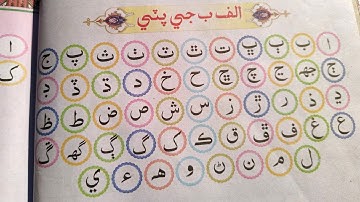 الف ب جي پٽي
ا ب ٻ ڀ ت ٿ ٽ ٺ ث پ ج
ڄ جھ ڃ چ ڇ ح خ د ڌ ڏ ڊ
ڍ ذ ر ڙ ز س ش ص ض ط ظ
ع غ ف ڦ ق ڪ ک گ ڳ گھ ڱ
ل م ن ڻ و ھ ء ي
ا
ک